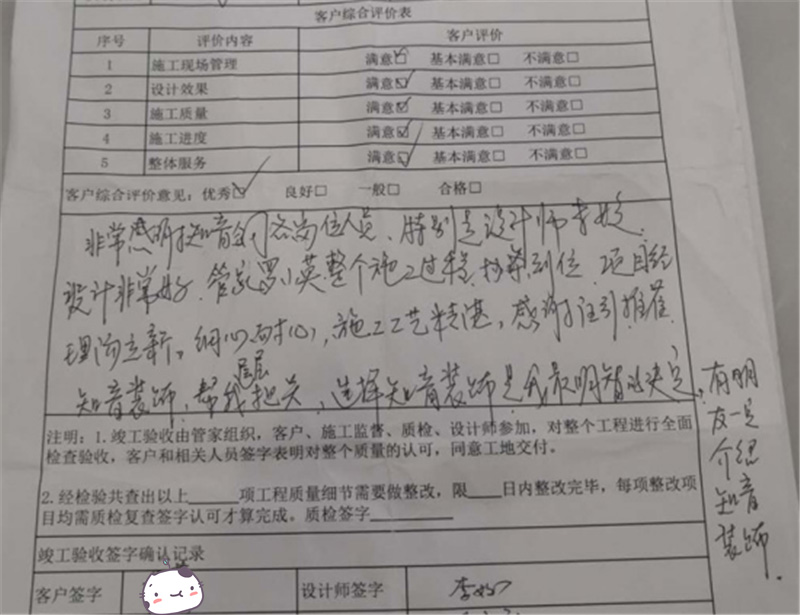 客户综合评价表
序号 评价内容 客户评价
1 施工现场管理 满意☑ 基本满意□ 不满意□
2 设计效果 满意☑ 基本满意□ 不满意□
3 施工质量 满意☑ 基本满意□ 不满意□
4 施工进度 满意☑ 基本满意□ 不满意□
5 整体服务 满意☑ 基本满意□ 不满意□
客户综合评价意见：优秀☑ 良好□ 一般□ 合格□
非常感谢知音的各岗位人员、特别是设计师李姣
设计非常好、管家罗小英整个施工过程、服务到位、项目经
理向立新，细心耐心，施工工艺精湛，感谢汪引推荐
知音装饰，帮我层层把关，选择知音装饰是我最明智的决定，
有朋
友一定
介绍
知音
装饰.
注明：1.竣工验收由管家组织，客户、施工监督、质检、设计师参加，对整个工程进行全面
检查验收，客户和相关人员签字表明对整个质量的认可，同意工地交付。
2.经检验共查出以上______项工程质量细节需要做整改，限____日内整改完毕，每项整改项
目均需质检复查签字认可才算完成。质检签字__________
竣工验收签字确认记录
客户签字 设计师签字